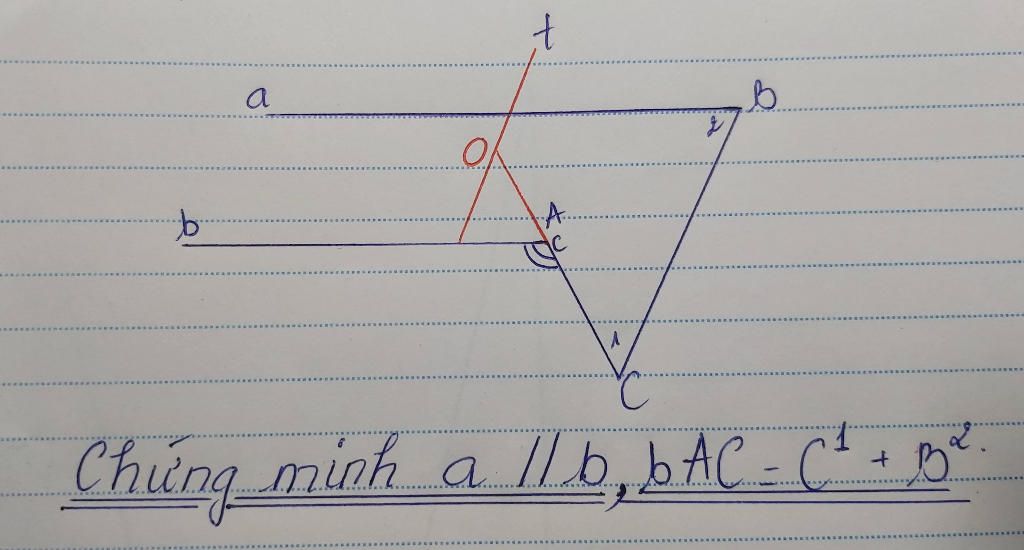 t
a
B
2
O
A
b
c
1
C
Chứng minh a // b, bAC = C¹ + B².